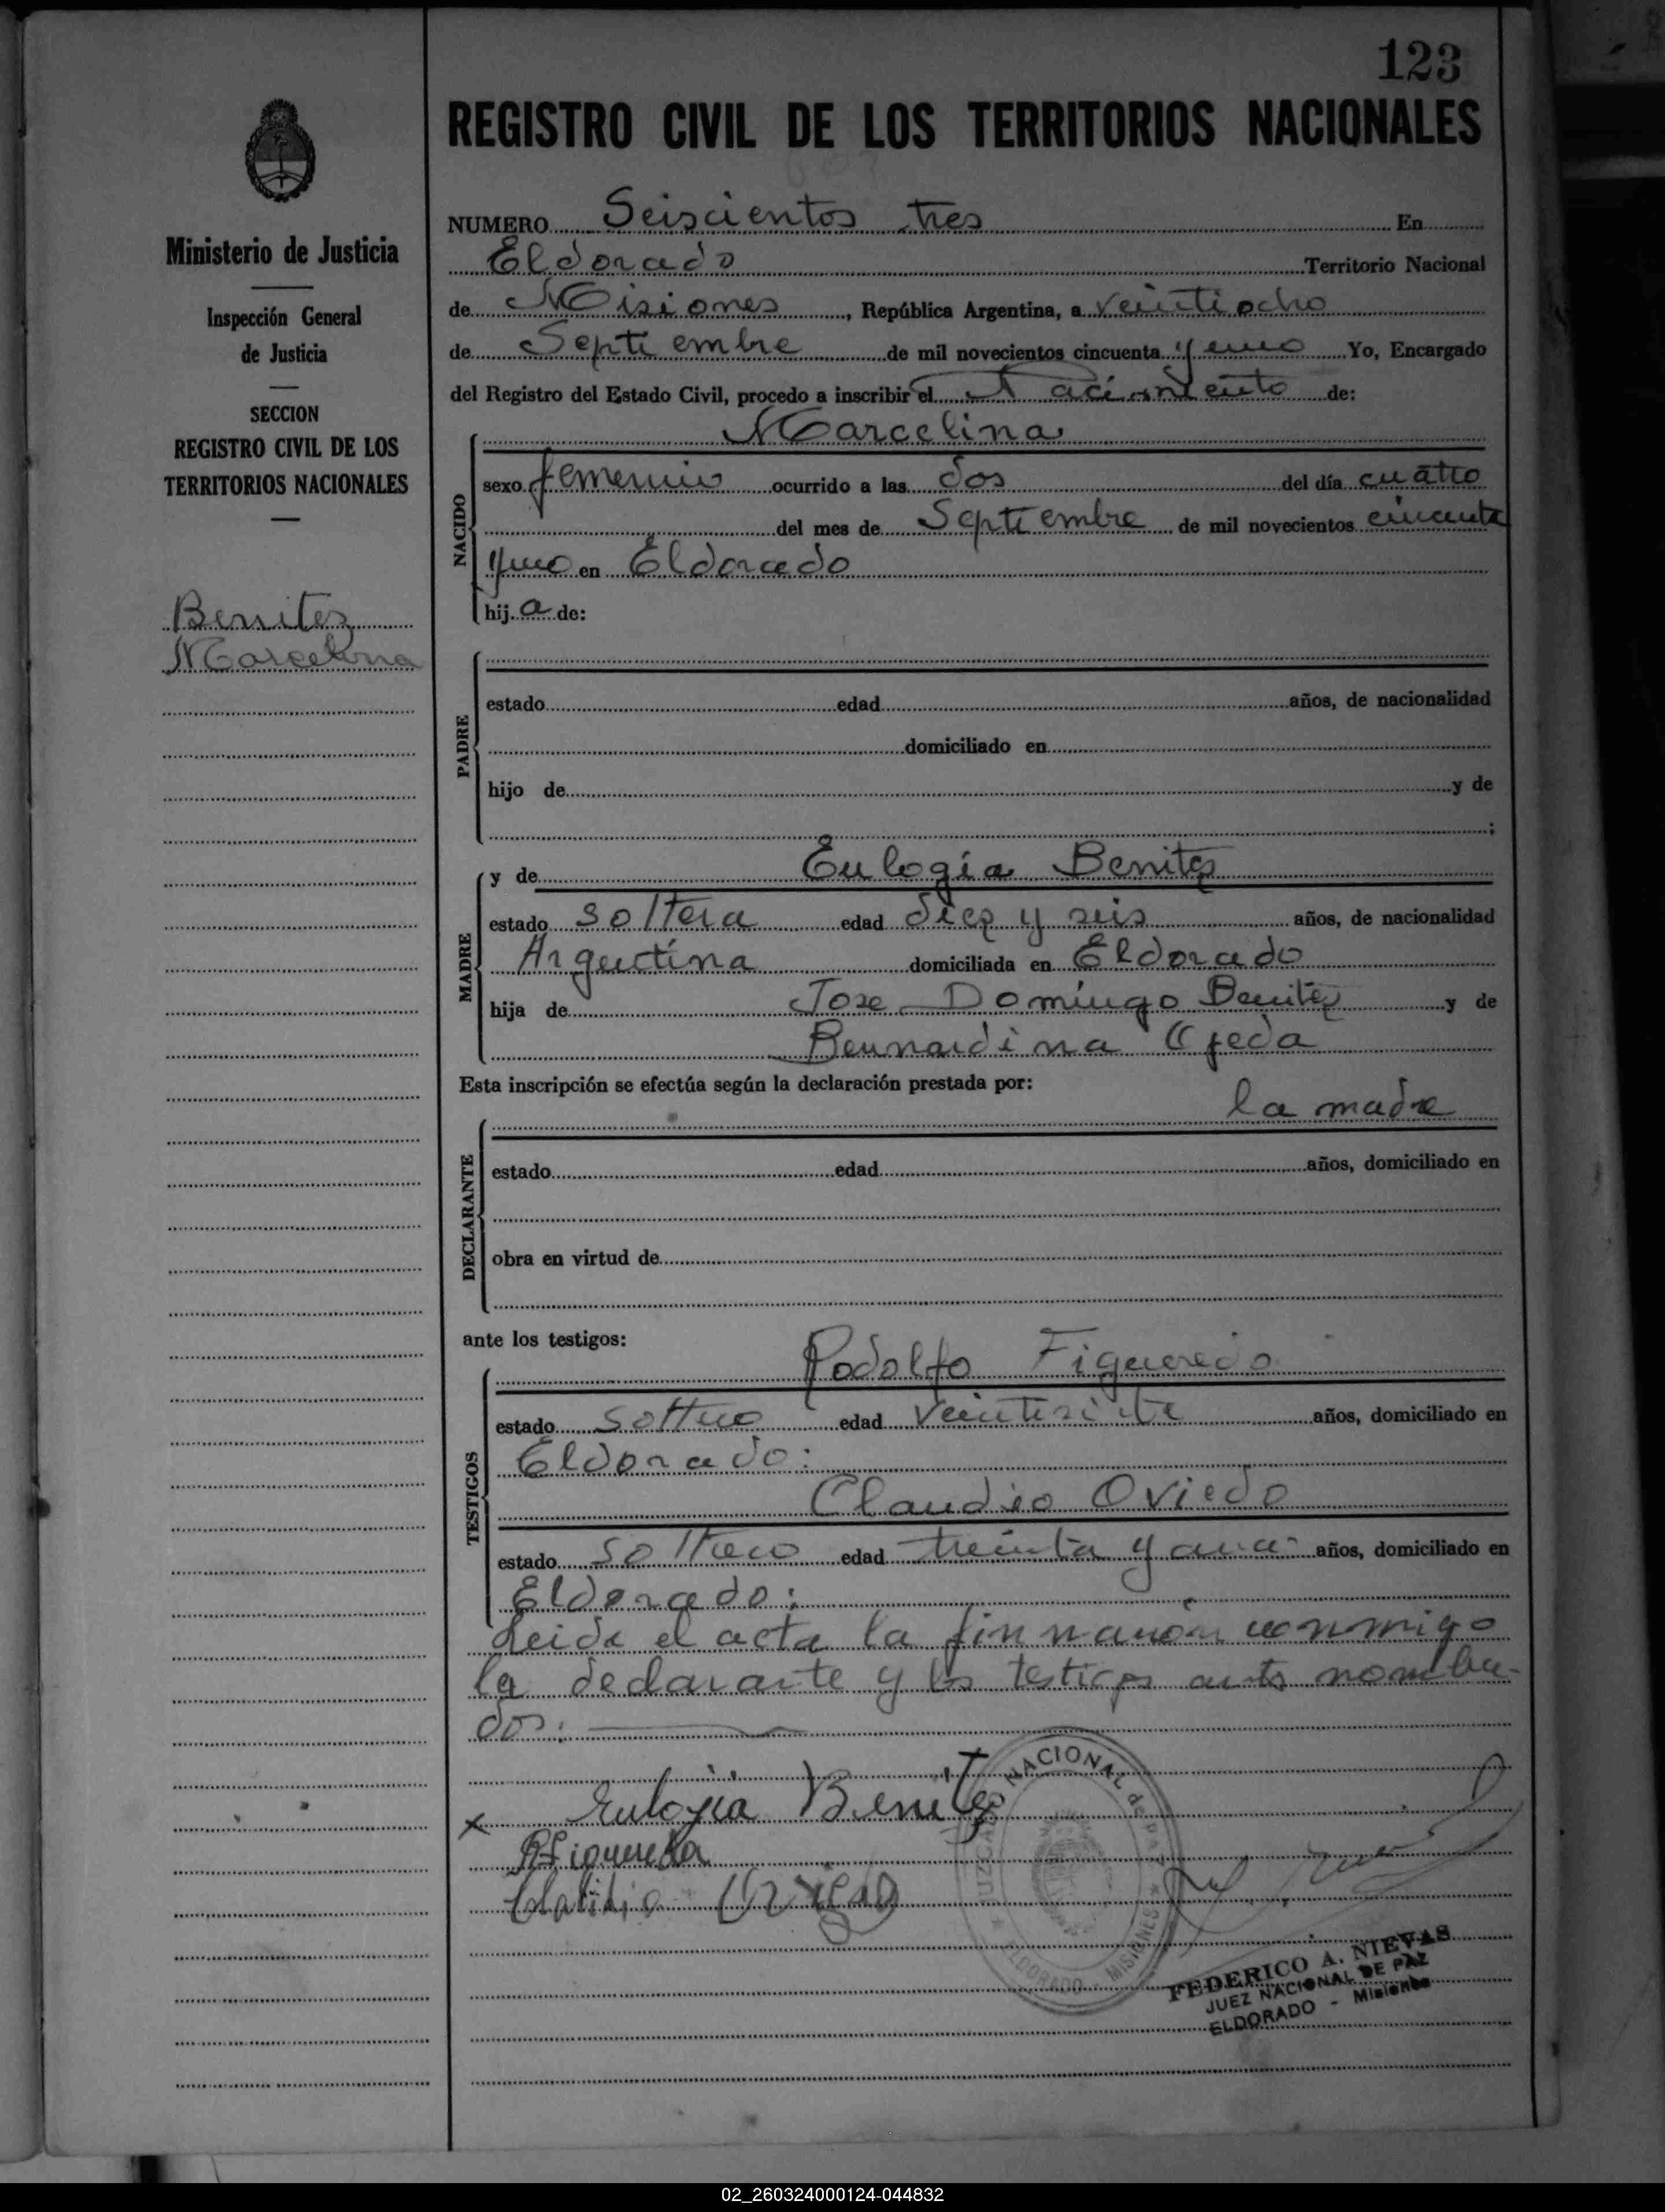 123
REGISTRO CIVIL DE LOS TERRITORIOS NACIONALES
Ministerio de Justicia
Inspección General
de Justicia
SECCION
REGISTRO CIVIL DE LOS
TERRITORIOS NACIONALES
Benitez
Marcelina
NUMERO Seiscientos tres En
Eldorado Territorio Nacional
de Misiones, República Argentina, a veintiocho
de Septiembre de mil novecientos cincuenta y uno Yo, Encargado
del Registro del Estado Civil, procedo a inscribir el Nacimiento de:
NACIDO
Marcelina
sexo femenino ocurrido a las dos del día cuatro
del mes de Septiembre de mil novecientos cincuenta
y uno en Eldorado
hija de:
PADRE
estado edad años, de nacionalidad
domiciliado en
hijo de y de
;
MADRE
y de Eulogia Benitez
estado soltera edad diez y seis años, de nacionalidad
Argentina domiciliada en Eldorado
hija de Jose Domingo Benitez y de
Bernardina Ojeda
Esta inscripción se efectúa según la declaración prestada por:
la madre
DECLARANTE
estado edad años, domiciliado en
obra en virtud de
ante los testigos:
TESTIGOS
Rodolfo Figueredo
estado soltero edad veintisiete años, domiciliado en
Eldorado:
Claudio Oviedo
estado soltero edad treinta y años, domiciliado en
Eldorado:
Leida el acta la firmaron conmigo
la declarante y los testigos antes nombra-
dos:
x Eulogia Benitez
RFigueredo
Oviedo
JUZGADO NACIONAL de PAZ
ELDORADO - MISIONES
FEDERICO A. NIEVAS
JUEZ NACIONAL DE PAZ
ELDORADO - Misiones
02_260324000124-044832